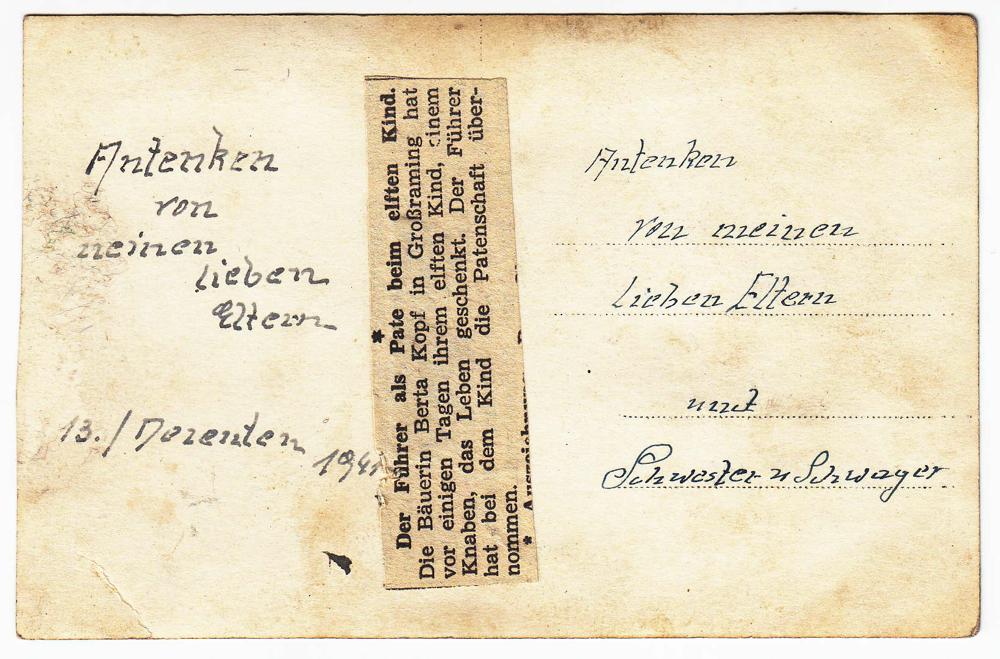 Antenken
von
meinen
lieben
Eltern
13./Dezenten
1941
*
Der Führer als Pate beim elften Kind.
Die Bäuerin Berta Kopf in Großraming hat
vor einigen Tagen ihrem elften Kind, einem
Knaben, das Leben geschenkt. Der Führer
hat bei dem Kind die Patenschaft über-
nommen.
*
Antenken
von meinen
lieben Eltern
unt
Schwester u Schwager